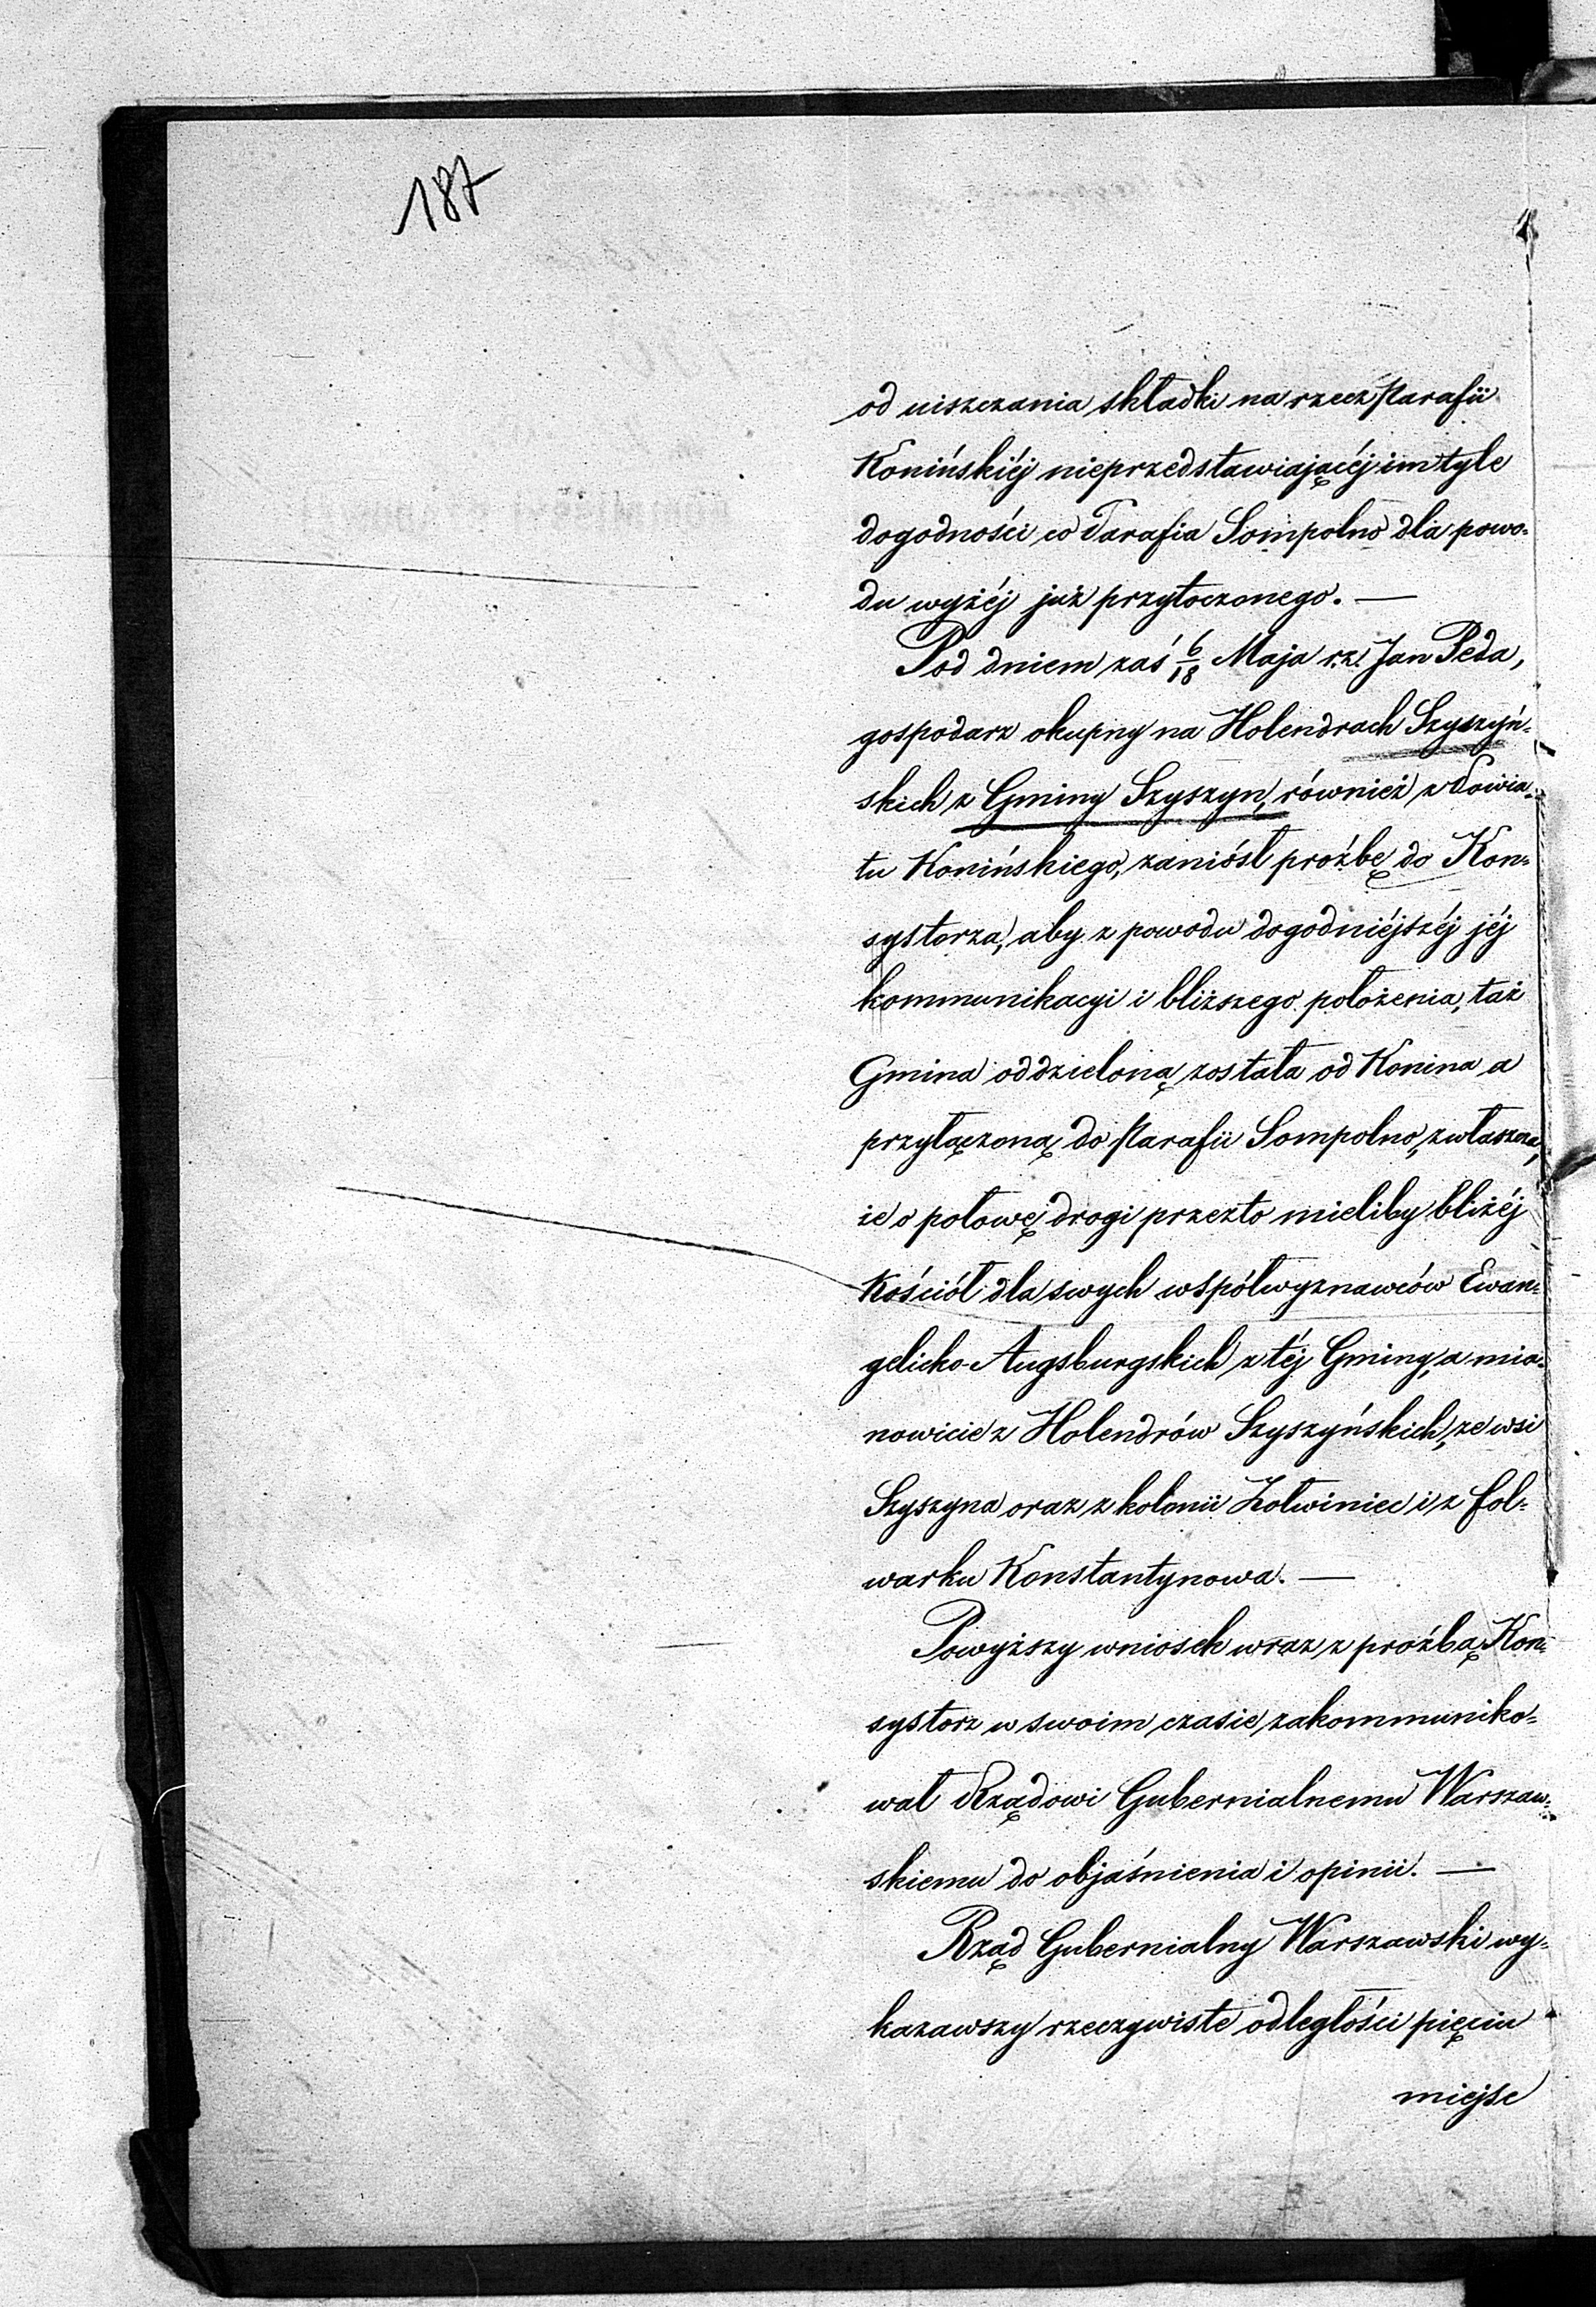 187
od uiszczania składki na rzecz Parafii
Konińskiéj nieprzedstawiającéj im tyle
dogodności co Parafia Sompolno dla powo-
du wyżéj już przytoczonego. —
Pod dniem zaś 6/18 Maja r.z. Jan Peda,
gospodarz okupny na Holendrach Szyszyń-
skich z Gminy Szyszyn, również z Powia-
tu Konińskiego, zaniósł proźbę do Kon-
systorza, aby z powodu dogodniéjszéj jéj
kommunikacyi i bliższego położenia, taż
Gmina oddzieloną została od Konina a
przyłączoną do Parafii Sompolno, zwłaszcza,
że o połowę drogi przezto mieliby bliżéj
Kościół dla swych współwyznawców Ewan-
gelicko-Augsburgskich z téj Gminy, a mia-
nowicie z Holendrów Szyszyńskich, ze wsi
Szyszyna oraz z kolonii Żołwiniec i z fol-
warku Konstantynowa. —
Powyższy wniosek wraz z proźbą Kon-
systorz w swoim czasie zakommuniko-
wał Rządowi Gubernialnemu Warszaw-
skiemu do objaśnienia i opinii. —
Rząd Gubernialny Warszawski wy-
kazawszy rzeczywiste odległości pięciu
miejsc